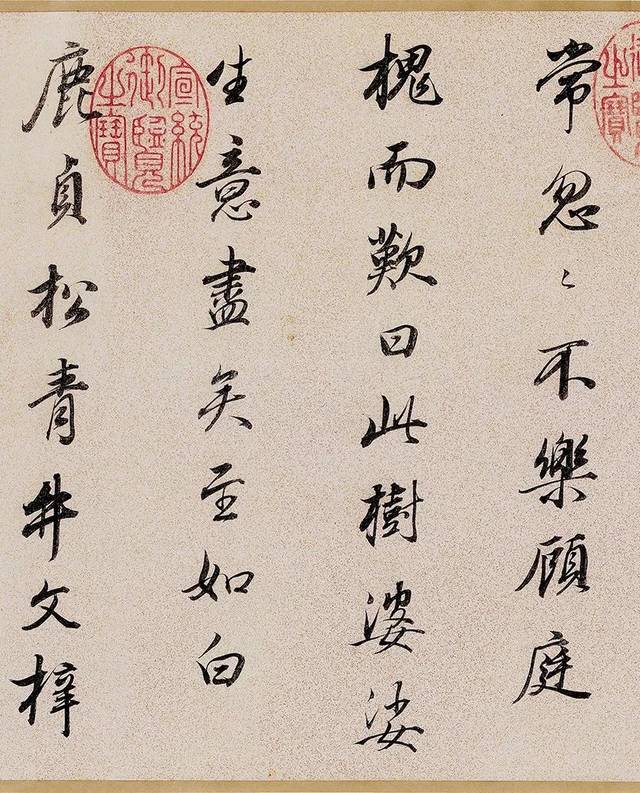 常忽〻不樂顧庭
槐而歎曰此樹婆娑
生意盡矣至如白
鹿貞松青牛文梓
宣統御覽之寶